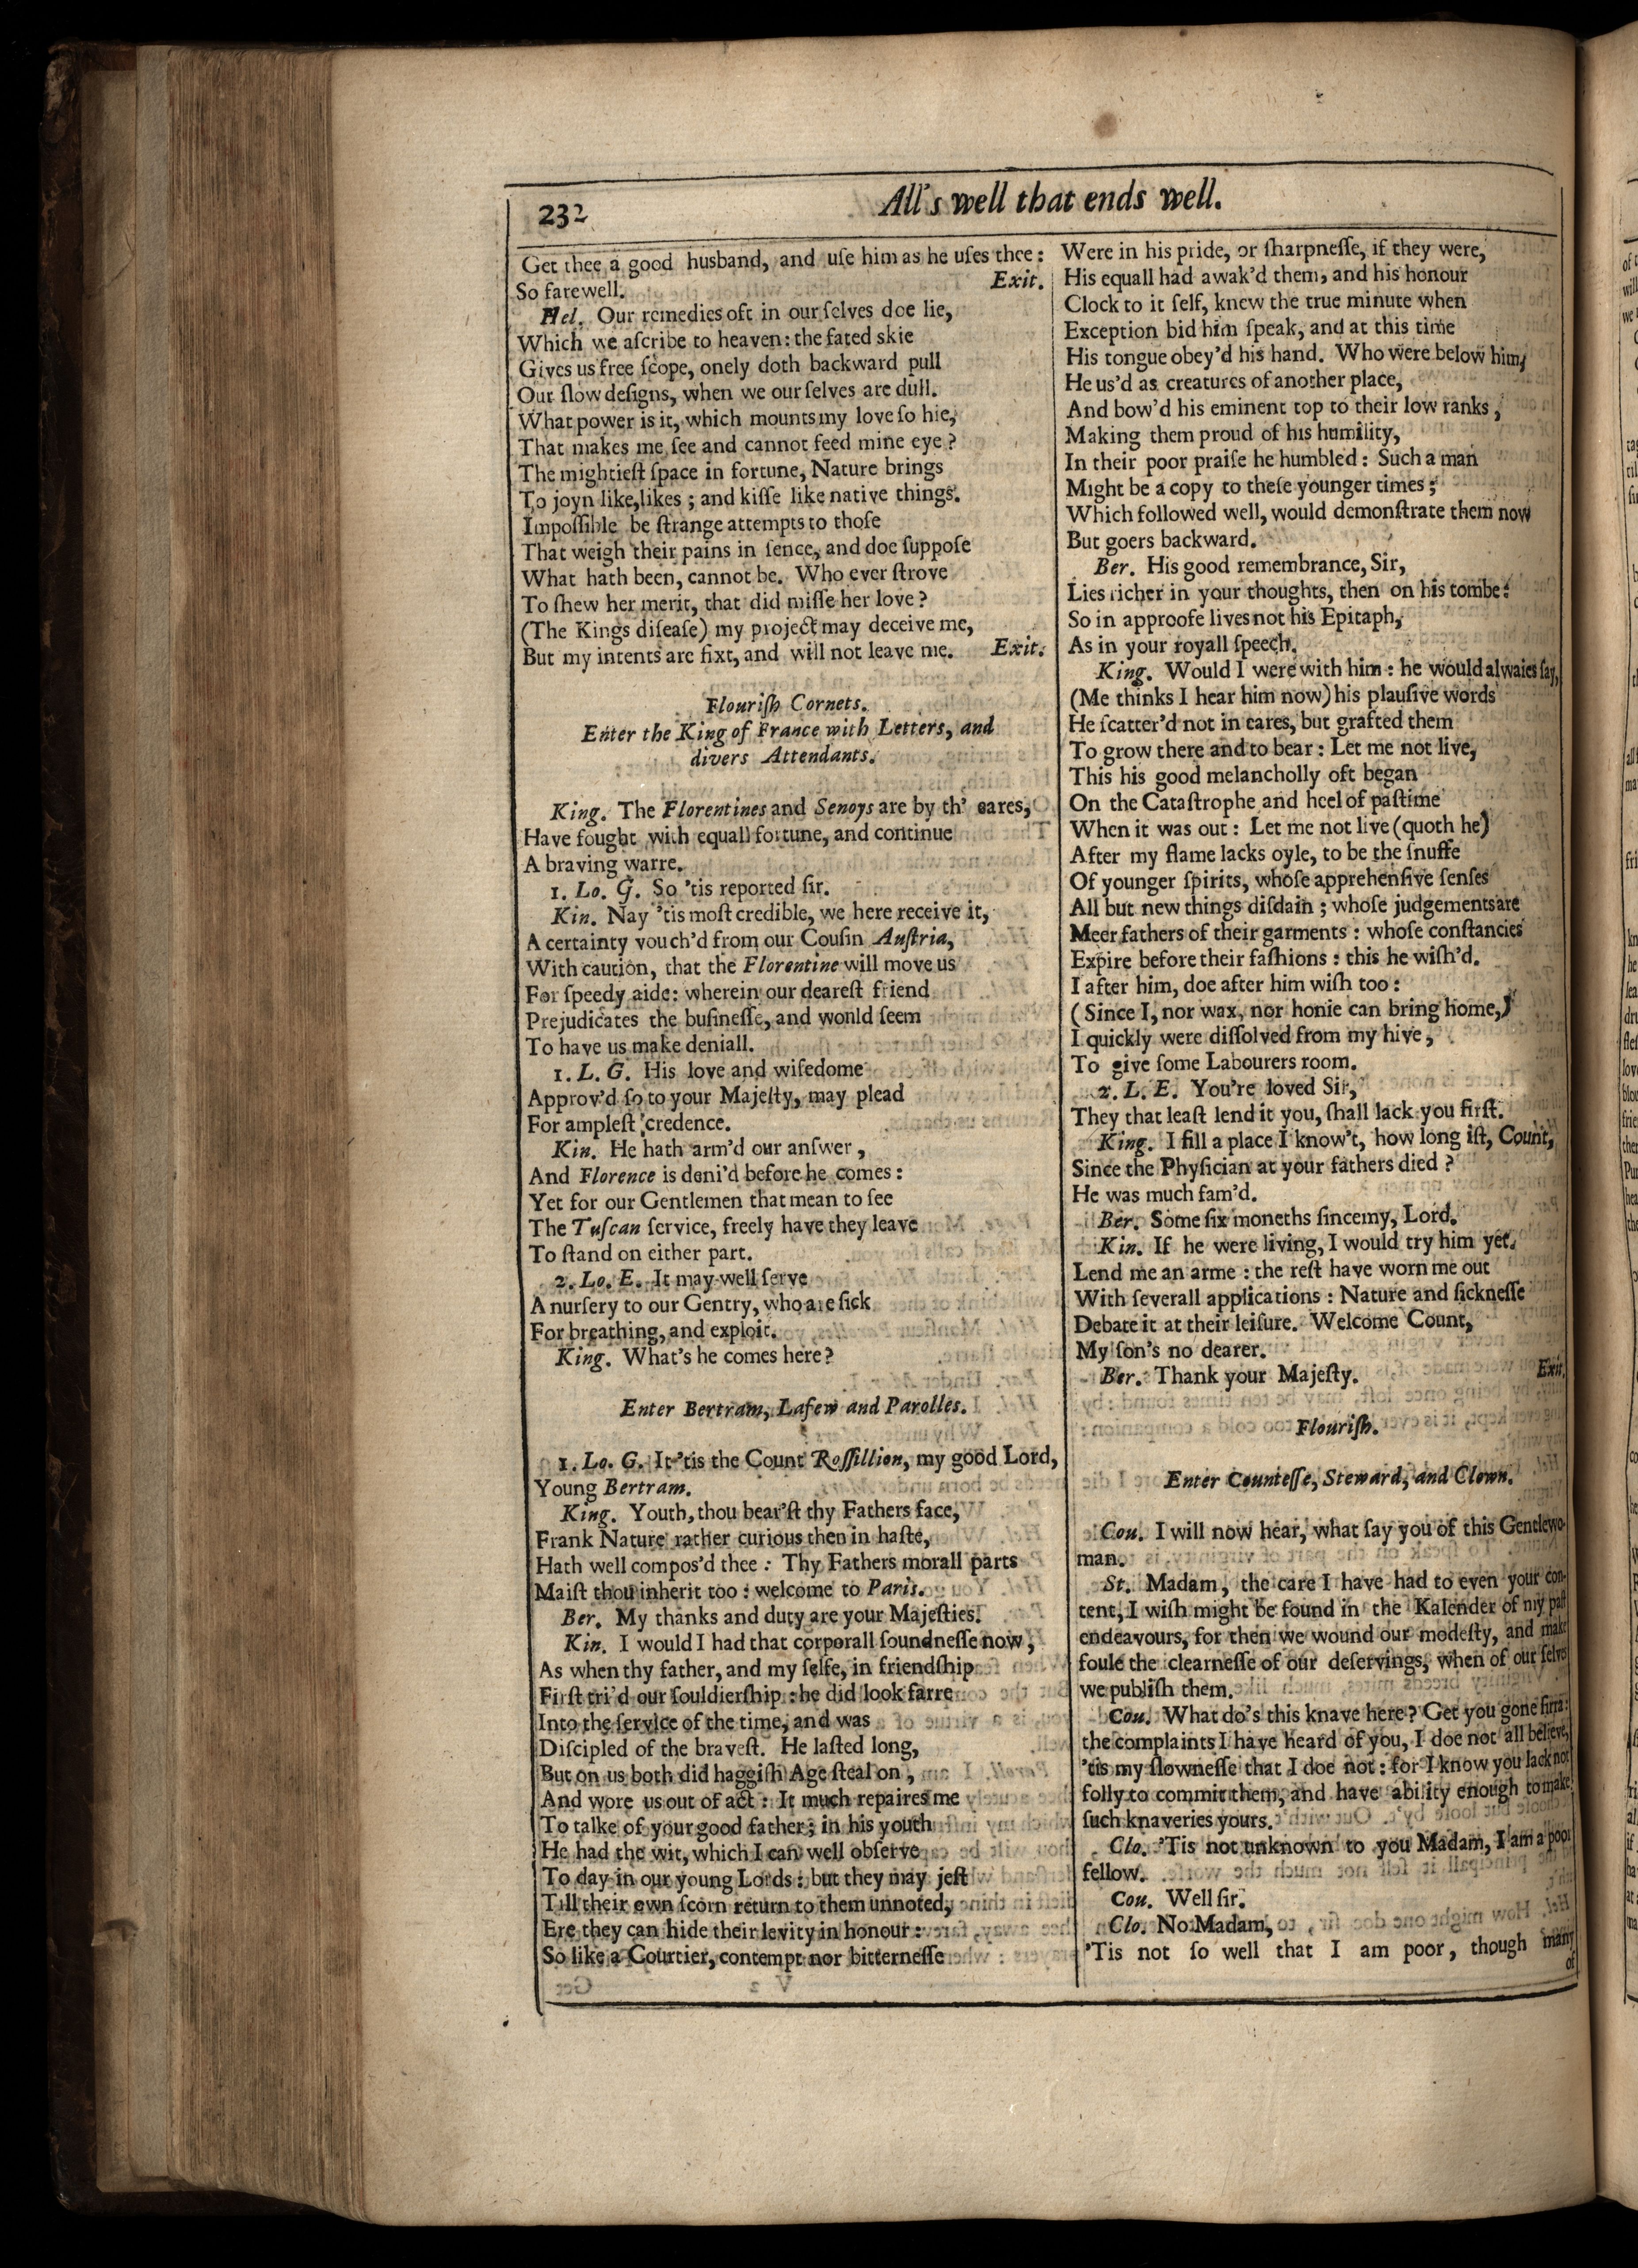 232
All's well that ends well.
Get thee a good husband, and uſe him as he uſes thee:
So farewell. Exit.
Hel. Our remedies oft in our ſelves doe lie,
Which we aſcribe to heaven: the fated skie
Gives us free ſcope, onely doth backward pull
Our ſlow deſigns, when we our ſelves are dull.
What power is it, which mounts my love ſo hie,
That makes me ſee and cannot feed mine eye?
The mightieſt ſpace in fortune, Nature brings
To joyn like, likes; and kiſſe like native things.
Impoſſible be ſtrange attempts to thoſe
That weigh their pains in ſence, and doe ſuppoſe
What hath been, cannot be. Who ever ſtrove
To ſhew her merit, that did miſſe her love?
(The Kings diſeaſe) my project may deceive me,
But my intents are fixt, and will not leave me. Exit.
Flouriſh Cornets.
Enter the King of France with Letters, and
divers Attendants.
King. The Florentines and Senoys are by th' eares,
Have fought with equall fortune, and continue
A braving warre.
1. Lo. G. So 'tis reported ſir.
Kin. Nay 'tis moſt credible, we here receive it,
A certainty vouch'd from our Couſin Auſtria,
With caution, that the Florentine will move us
For ſpeedy aide: wherein our deareſt friend
Prejudicates the buſineſſe, and wonld ſeem
To have us make deniall.
1. L. G. His love and wiſedome
Approv'd ſo to your Majeſty, may plead
For ampleſt credence.
Kin. He hath arm'd our anſwer,
And Florence is deni'd before he comes:
Yet for our Gentlemen that mean to ſee
The Tuſcan ſervice, freely have they leave
To ſtand on either part.
2. Lo. E. It may well ſerve
A nurſery to our Gentry, who are ſick
For breathing, and exploit.
King. What's he comes here?
Enter Bertram, Lafew and Parolles.
1. Lo. G. It 'tis the Count Roſſillion, my good Lord,
Young Bertram.
King. Youth, thou bear'ſt thy Fathers face,
Frank Nature rather curious then in haſte,
Hath well compos'd thee: Thy Fathers morall parts
Maiſt thou inherit too: welcome to Paris.
Ber. My thanks and duty are your Majeſties.
Kin. I would I had that corporall ſoundneſſe now,
As when thy father, and my ſelfe, in friendſhip
Firſt tri'd our ſouldierſhip: he did look farre
Into the ſervice of the time, and was
Diſcipled of the braveſt. He laſted long,
But on us both did haggiſh Age ſteal on,
And wore us out of act: It much repaires me
To talke of your good father; in his youth
He had the wit, which I can well obſerve
To day in our young Lords: but they may jeſt
Till their own ſcorn return to them unnoted,
Ere they can hide their levity in honour:
So like a Courtier, contempt nor bitterneſſe
Were in his pride, or ſharpneſſe, if they were,
His equall had awak'd them, and his honour
Clock to it ſelf, knew the true minute when
Exception bid him ſpeak, and at this time
His tongue obey'd his hand. Who were below him,
He us'd as creatures of another place,
And bow'd his eminent top to their low ranks,
Making them proud of his humility,
In their poor praiſe he humbled: Such a man
Might be a copy to theſe younger times;
Which followed well, would demonſtrate them now
But goers backward.
Ber. His good remembrance, Sir,
Lies richer in your thoughts, then on his tombe:
So in approofe lives not his Epitaph,
As in your royall ſpeech.
King. Would I were with him: he would alwaies ſay,
(Me thinks I hear him now) his plauſive words
He ſcatter'd not in eares, but grafted them
To grow there and to bear: Let me not live,
This his good melancholly oft began
On the Cataſtrophe and heel of paſtime
When it was out: Let me not live (quoth he)
After my flame lacks oyle, to be the ſnuffe
Of younger ſpirits, whoſe apprehenſive ſenſes
All but new things diſdain; whoſe judgements are
Meer fathers of their garments: whoſe conſtancies
Expire before their faſhions: this he wiſh'd.
I after him, doe after him wiſh too:
(Since I, nor wax, nor honie can bring home,)
I quickly were diſſolved from my hive,
To give ſome Labourers room.
2. L. E. You're loved Sir,
They that leaſt lend it you, ſhall lack you firſt.
King. I fill a place I know't, how long iſt, Count,
Since the Phyſician at your fathers died?
He was much fam'd.
Ber. Some ſix moneths ſince my, Lord.
Kin. If he were living, I would try him yet.
Lend me an arme: the reſt have worn me out
With ſeverall applications: Nature and ſickneſſe
Debate it at their leiſure. Welcome Count,
My ſon's no dearer.
Ber. Thank your Majeſty. Exit.
Flouriſh.
Enter Counteſſe, Steward, and Clown.
Cou. I will now hear, what ſay you of this Gentlewo-
man.
St. Madam, the care I have had to even your con-
tent, I wiſh might be found in the Kalender of my paſt
endeavours, for then we wound our modeſty, and make
foule the clearneſſe of our deſervings, when of our ſelves
we publiſh them.
Cou. What do's this knave here? Get you gone ſirra:
the complaints I have heard of you, I doe not all believe,
'tis my ſlowneſſe that I doe not: for I know you lack not
folly to commit them, and have ability enough to make
ſuch knaveries yours.
Clo. 'Tis not unknown to you Madam, I am a poor
fellow.
Cou. Well ſir.
Clo. No Madam,
'Tis not ſo well that I am poor, though many
of